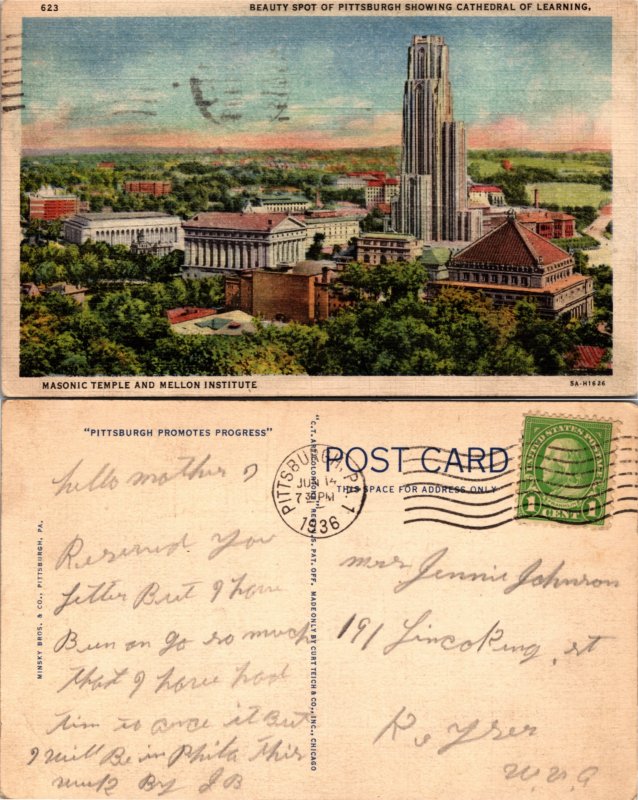 623
BEAUTY SPOT OF PITTSBURGH SHOWING CATHEDRAL OF LEARNING,
MASONIC TEMPLE AND MELLON INSTITUTE
5A-H1626
"PITTSBURGH PROMOTES PROGRESS"
MINSKY BROS. & CO., PITTSBURGH, PA.
"C.T. ART-COLORTONE" REG. U.S. PAT. OFF. MADE ONLY BY CURT TEICH & CO., INC., CHICAGO
POST CARD
THIS SPACE FOR ADDRESS ONLY
PITTSBURGH, PA. 1
JUN 14
7 30 PM
1936
UNITED STATES POSTAGE
1 CENT 1
hello mother
Received you
letter But I have
Been on go so much
that I have had
tim to it But
I will Be in Phila this
By JB
mrs Jennie Johnson
191 st
Keyser
W.VA